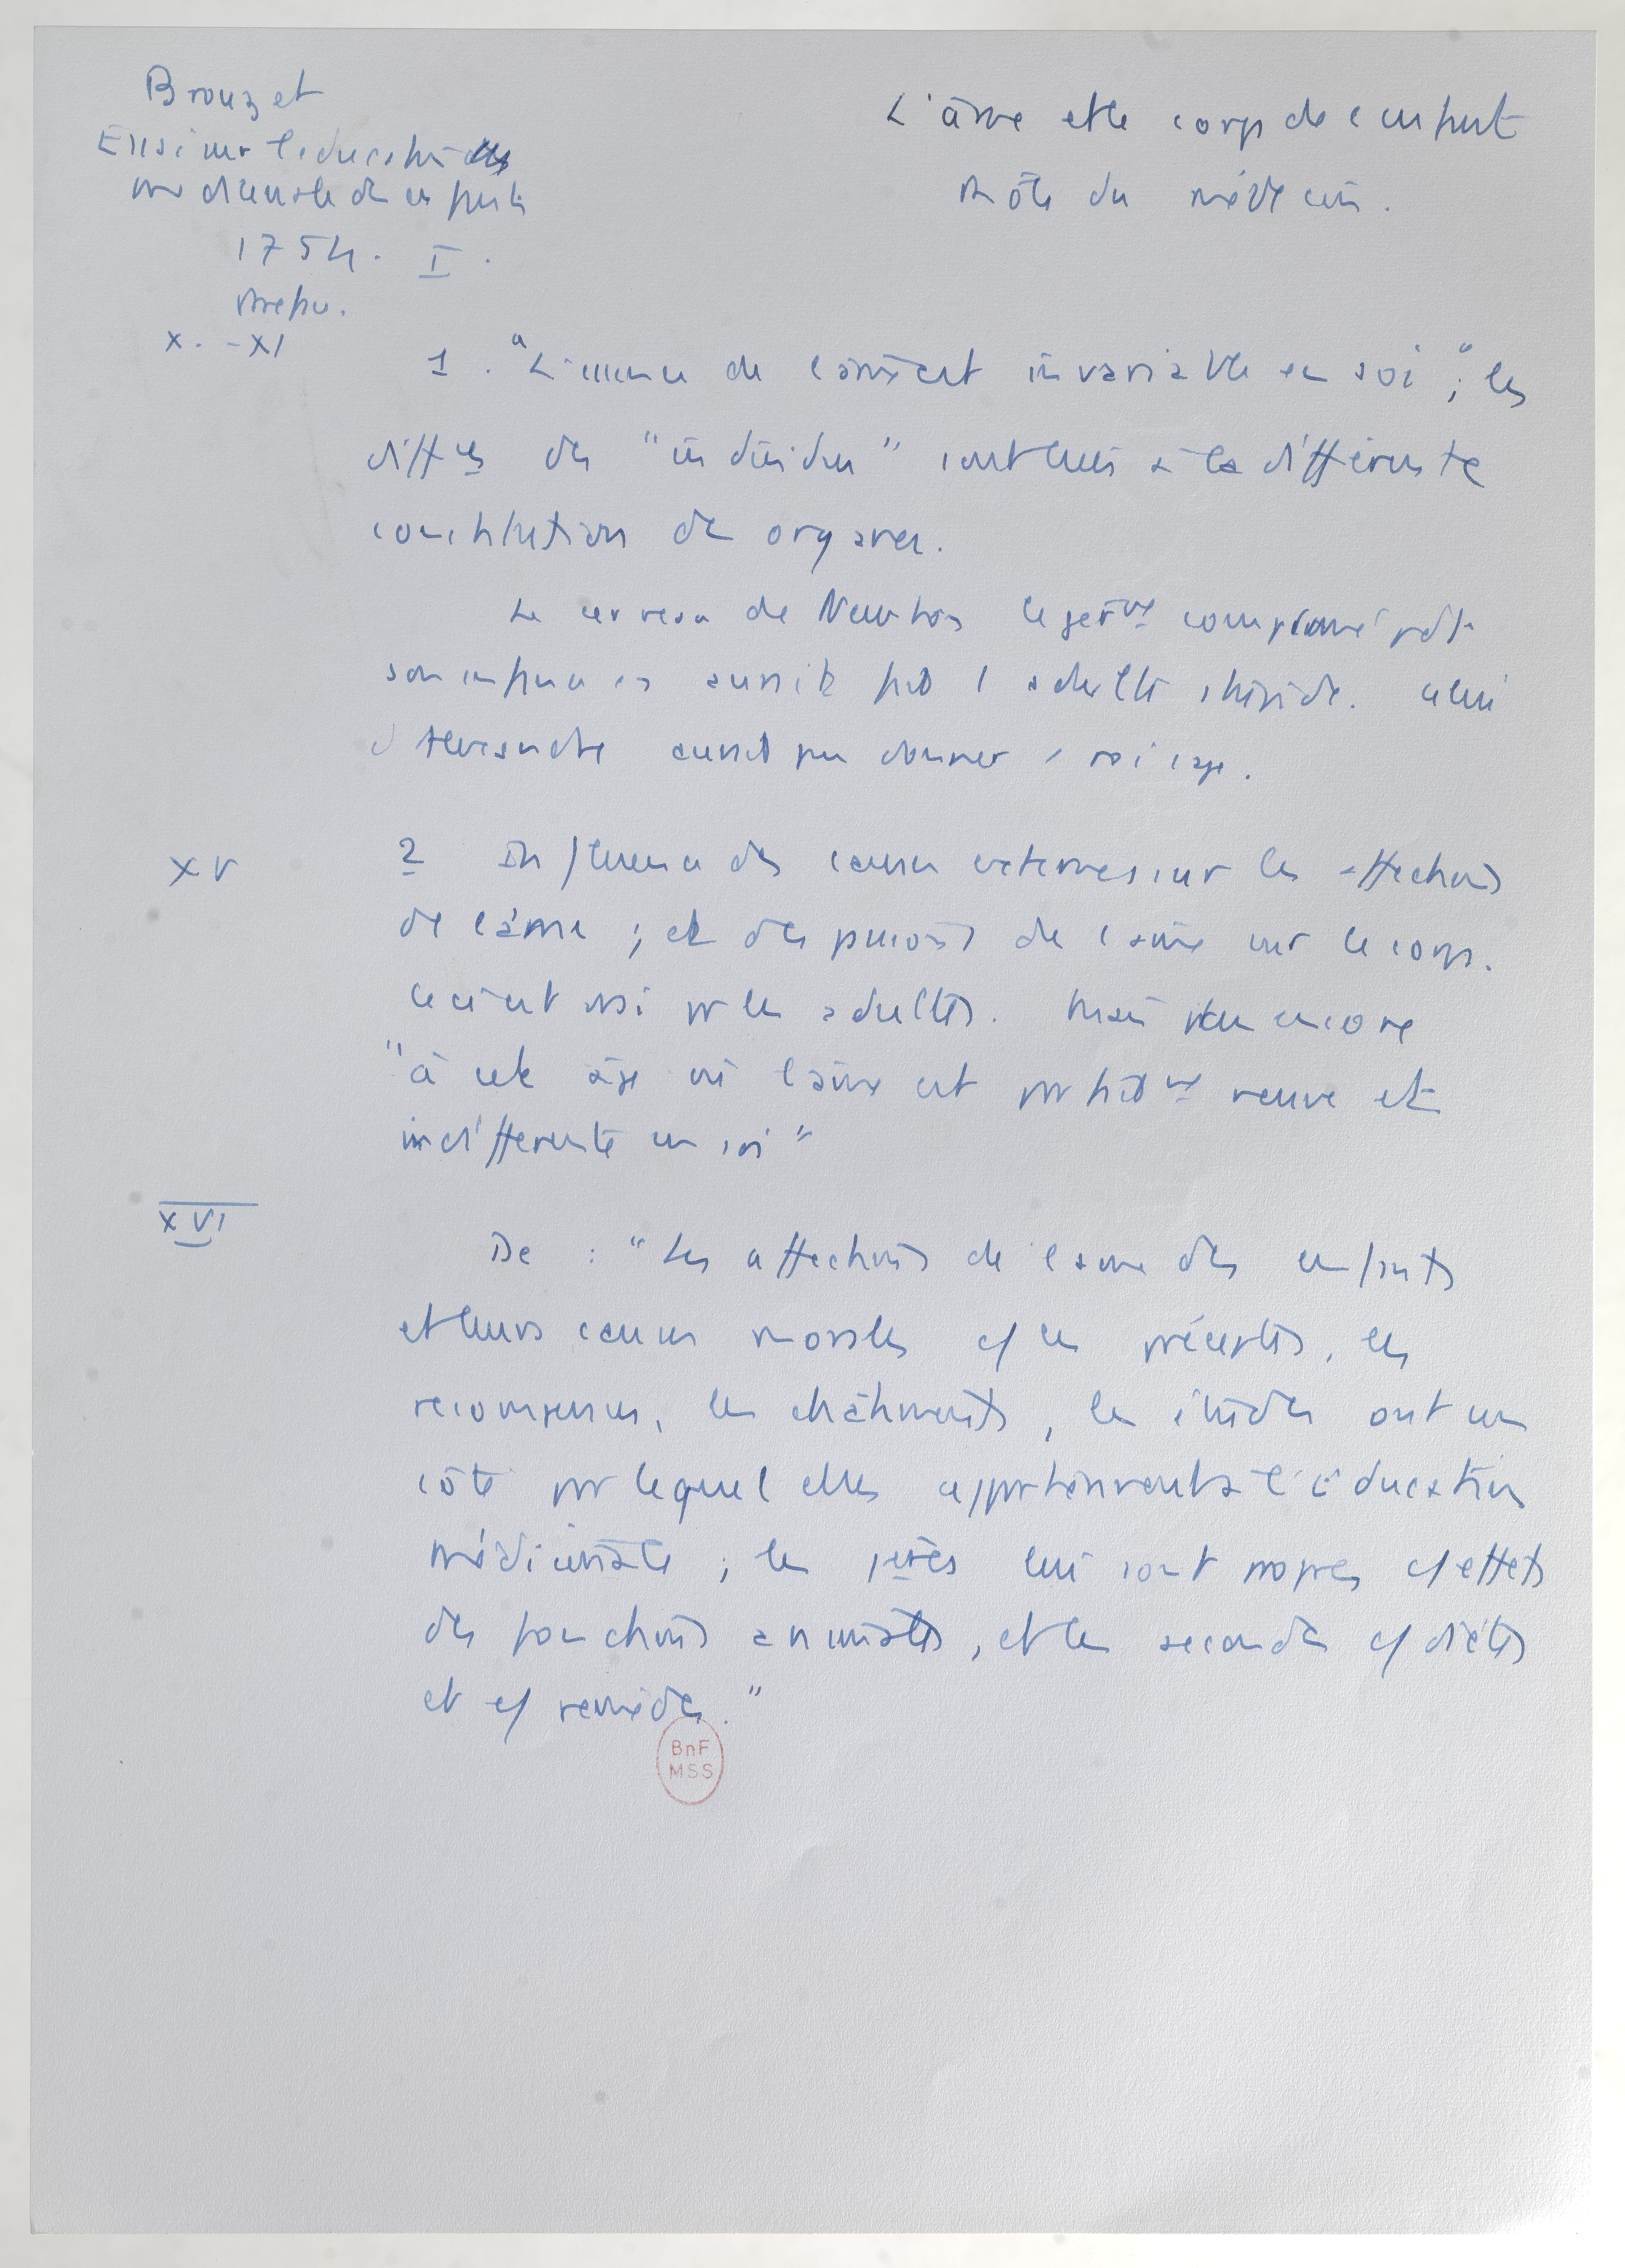 Brouzet
Essai sur l'éducation
médicinale des enfants
1754. I.
Préface.
L'âme et le corps de l'enfant
Rôle du médecin.
X. - XI
1. "L'essence de l'âme est invariable en soi"; les
diffces des "individus" sont dues à la différente
constitution des organes.
Le cerveau de Newton légèrmt comprimé pdt
son enfance en aurait fait 1 adulte stupide. celui
aurait pu donner 1 sage.
XV
2 Influence des causes externes sur les affections
de l'âme ; et des passions de l'âme sur le corps.
Ceci est vrai pr les adultes. Mais plus encore
"à cet âge où l'âme est parfaitmt neuve et
indifférente en soi"
XVI
De : "Les affections de l'âme des enfants
et leurs causes morales cf les préceptes, les
recompenses, les châtiments, les études ont un
côté par lequel elles appartiennent à l'éducation
médicinale ; les 1ères lui sont propres cf effets
des fonctions animales, et les secondes cf diètes
et cf remèdes."
BnF
MSS